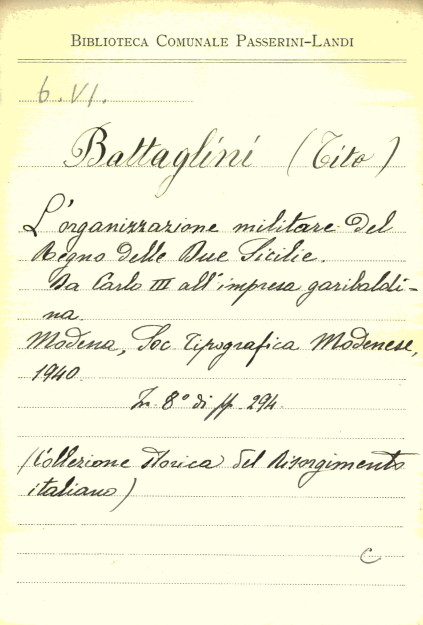 BIBLIOTECA COMUNALE PASSERINI-LANDI
6.VI.
Battaglini (Tito)
L'organizzazione militare del
Regno delle Due Sicilie.
Da Carlo III all'impresa garibaldi-
na.
Modena, Soc Tipografica Modenese,
1940.
In 8° di pp. 294.
(Collezione storica del Risorgimento
italiano)
C